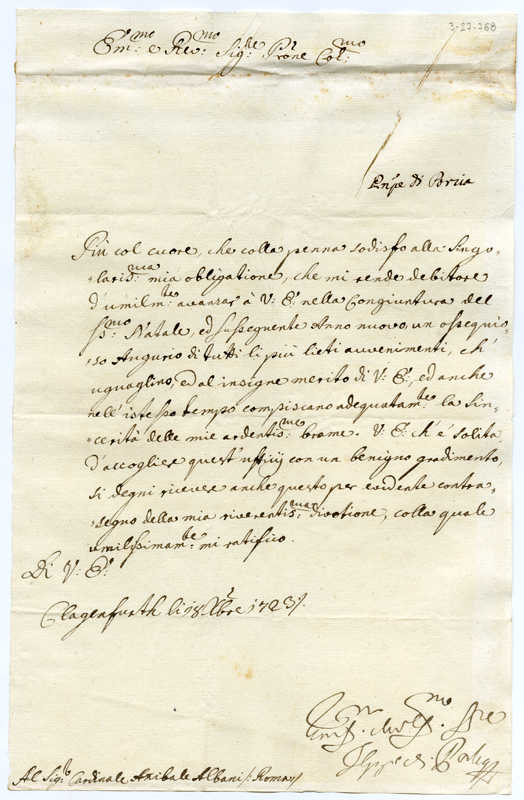 3-27-768
Em:mo e Rev:mo Sig:re Prone Col:mo
Pnpe di Porcia
Più col cuore, che colla penna sodisfo alla singo-
-laris:ma mia obligatione, che mi rende debitore
d'umilm:te avanzar à V: E: nella congiuntura del
SS:mo Natale, ed susseguente Anno nuovo, un ossequio-
-so Augurio di tutti li più lieti avvenimenti, ch'
uguaglino, ed al insigne merito di V: E:, ed anche
nell'istesso tempo compiscano adequatam:te la sin-
-cerità delle mie ardentis:me brame. V: E: ch'è solita
d'accogliere quest'ufficij con un benigno gradimento,
si degni ricever anche questo per evidente contra-
-segno della mia riverentis:ma divotione, colla quale
umilissimam:te mi ratifico.
Di V: E:
Clagenfurth li 18 Xbre 1723/.
Al Sig:r Cardinale Anibale Albani /: Roma/